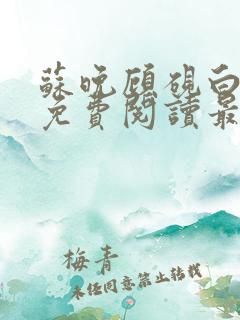 蘇晚顧硯白
免費閱讀最
梅青
未經同意禁止轉載